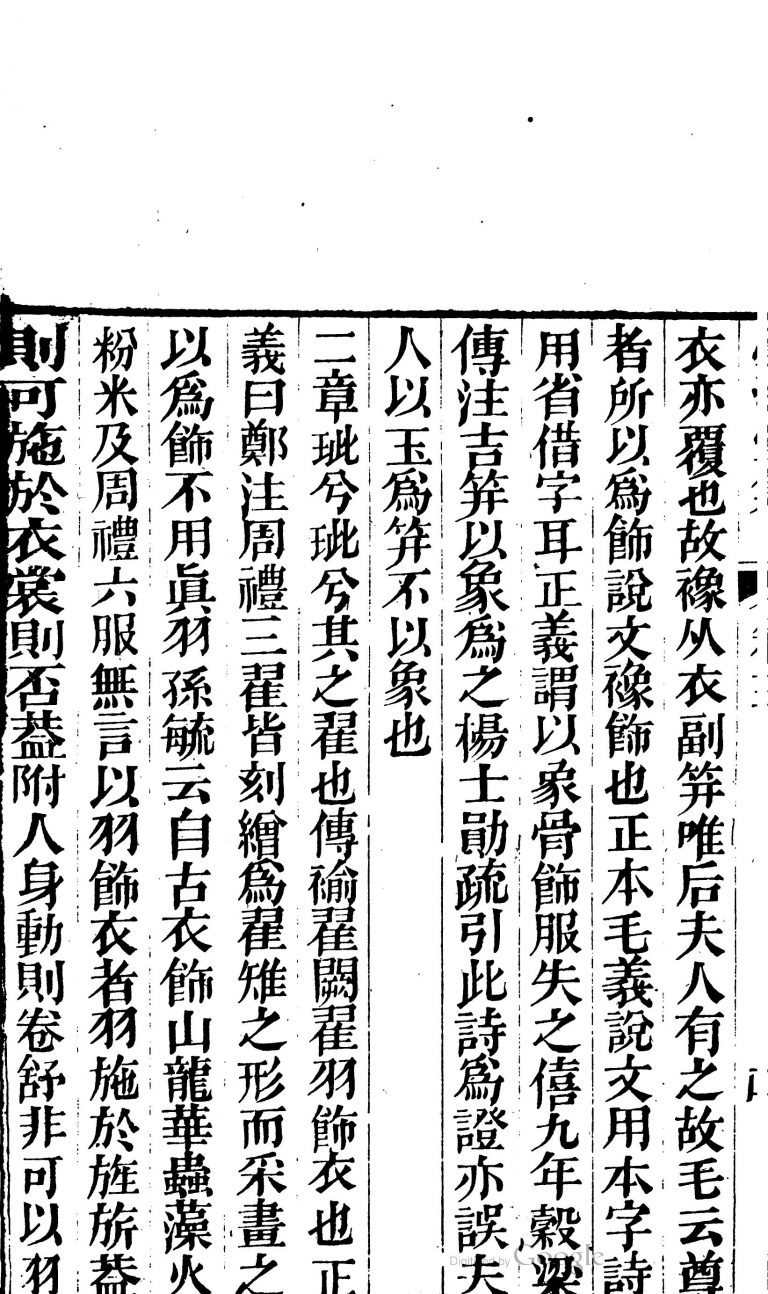 衣亦覆也故襐从衣副笄唯后夫人有之故毛云尊
者所以爲飾說文襐飾也正本毛義說文用本字詩
用省借字耳正義謂以象骨飾服失之僖九年榖梁
傳注吉笄以象爲之楊士勛疏引此詩爲證亦誤夫
人以玉爲笄不以象也
二章玼兮玼兮其之翟也傳褕翟闕翟羽飾衣也正
義曰鄭注周禮三翟皆刻繒爲翟雉之形而采畫之
以爲飾不用眞羽孫毓云自古衣飾山龍華蟲藻火
粉米及周禮六服無言以羽飾衣者羽施於旌旂葢
則可施於衣裳則否葢附人身動則卷舒非可以羽
Digitized by Google